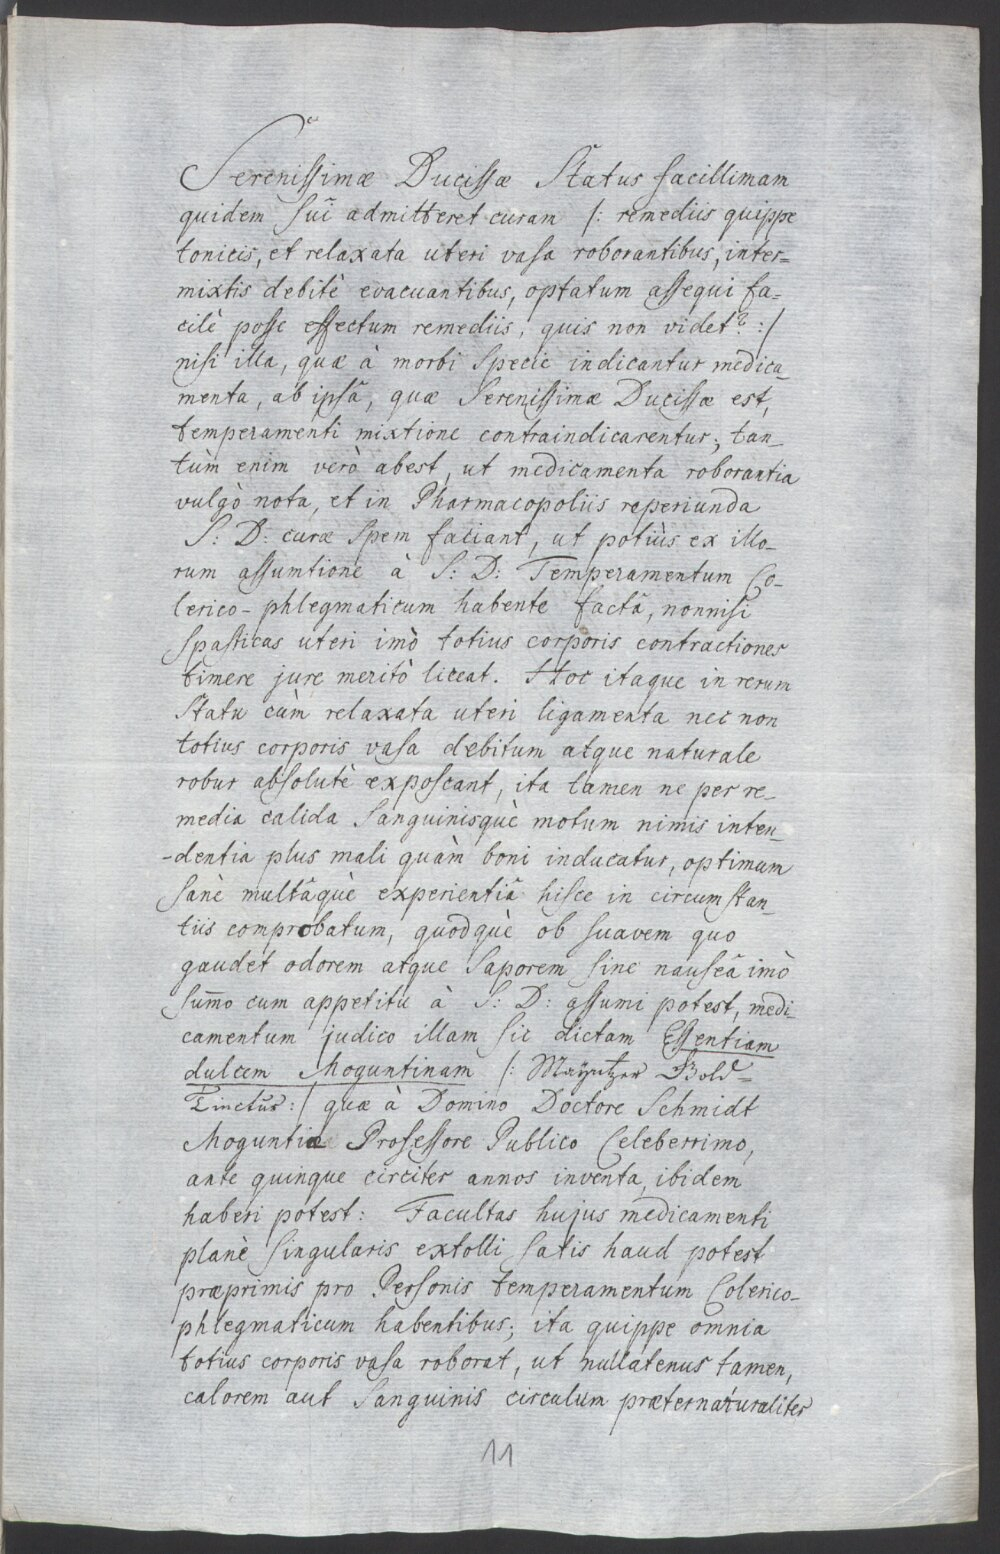 Serenissimæ Ducissæ Status facillimam
quidem sui admitteret curam /: remediis quippe
tonicis, et relaxata uteri vasa roborantibus, inter=
mixtis debitè evacuantibus, optatum assequi fa=
cilè posse effectum remediis, quis non videt? :/
nisi illa, quæ à morbi specie indicantur medica_
menta, ab ipsâ, quæ Serenissimæ Ducissæ est,
temperamenti mixtione contraindicarentur; tan_
tùm enim verò abest, ut medicamenta roborantia
vulgò nota, et in Pharmacopoliis reperiunda
S: D: curæ spem faciant, ut potiùs ex illo_
rum assumtione à S: D: Temperamentum Co_
lerico-phlegmaticum habente factâ, nonnisi
spasticas uteri imò totius corporis contractiones
timere jure meritò liceat. Hoc itaque in rerum
Statu cùm relaxata uteri ligamenta nec non
totius corporis vasa debitum atque naturale
robur absolutè exposcant, ita tamen ne per re_
media calida Sanguinisquè motum nimis inten_
-dentia plus mali quàm boni inducatur, optimum
sanè multâquè experientiâ hisce in circumstan_
tiis comprobatum, quodquè ob suavem quo
gaudet odorem atque Saporem sine nauseâ imò
sum̄o cum appetitu à S: D: assumi potest, medi_
camentum judico illam sic dictam Essentiam
dulcem Moguntinam /: Maÿntzer Gold=
Tinctur :/ quæ à Domino Doctore Schmidt
Moguntiæ Professore Publico Celeberrimo,
ante quinque circiter annos inventa, ibidem
haberi potest: Facultas hujus medicamenti
planè Singularis extolli satis haud potest
præprimis pro Personis temperamentum Colerico-
phlegmaticum habentibus; ita quippe omnia
totius corporis vasa roborat, ut nullatenus tamen,
calorem aut Sanguinis circulum præternaturaliter
11